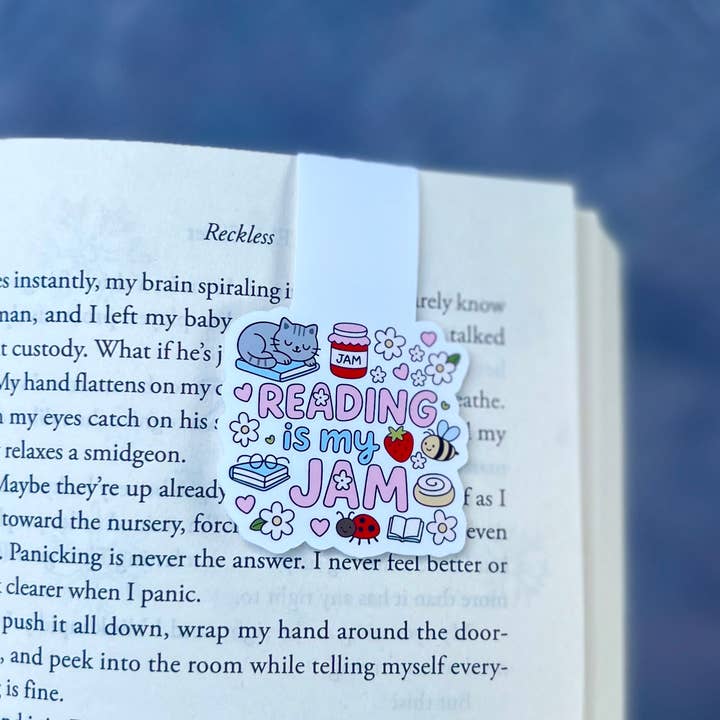 Reckless
instantly, my brain spiraling
and I left my baby
rely know
talked
custody. What if he's
My hand flattens on my
athe.
my eyes catch on his
my
relaxes a smidgeon.
Maybe they're up already
f as I
toward the nursery,
even
Panicking is never the answer. I never feel better or
clearer when I panic.
push it all down, wrap my hand around the door-
and peek into the room while telling myself every-
is fine.
JAM
READING
is my
JAM